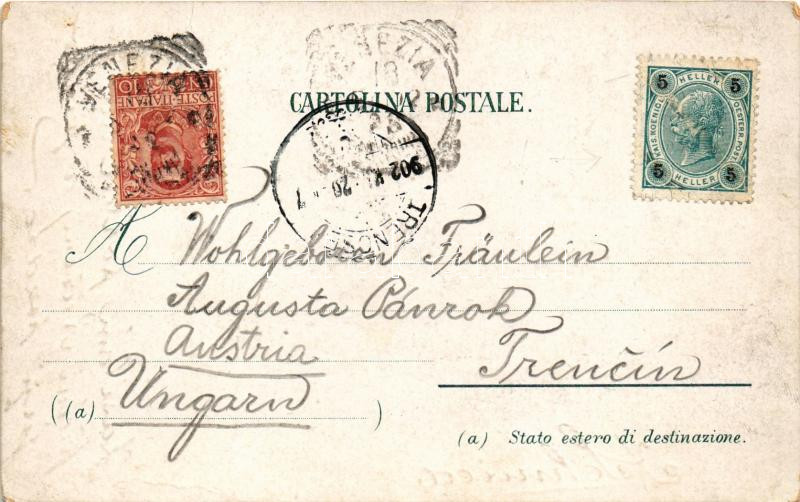 VENEZIA
POSTE ITALIANE
VENEZIA
10
CARTOLINA POSTALE.
5 HELLER 5
KAIS. KOENIGL. OESTERR. POST
5 HELLER 5
902
TRENCSÉN
A Wohlgeboren Fräulein
Augusta Pánrok
Austria
Trenčín
((a) Ungarn )
(a) Stato estero di destinazione.